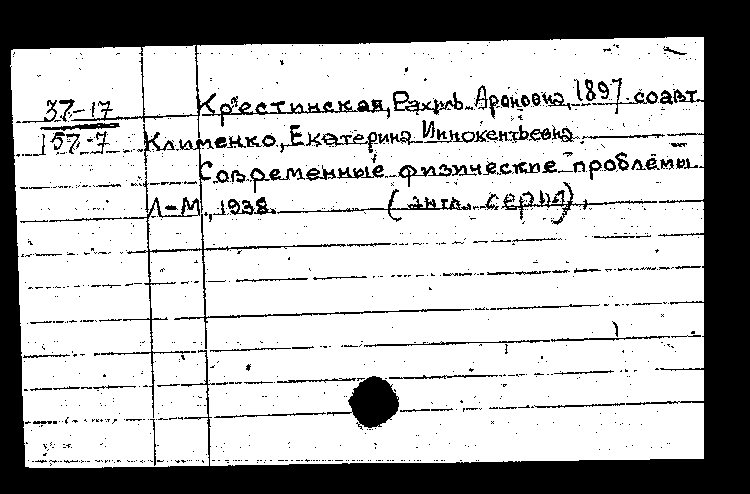 37-17
Крестинская, Рахиль Ароновна, 1897 соавт.
157-7
Клименко, Екатерина Иннокентьевна.
Современные физические проблемы.
Л-М., 1938. (англ. серия),